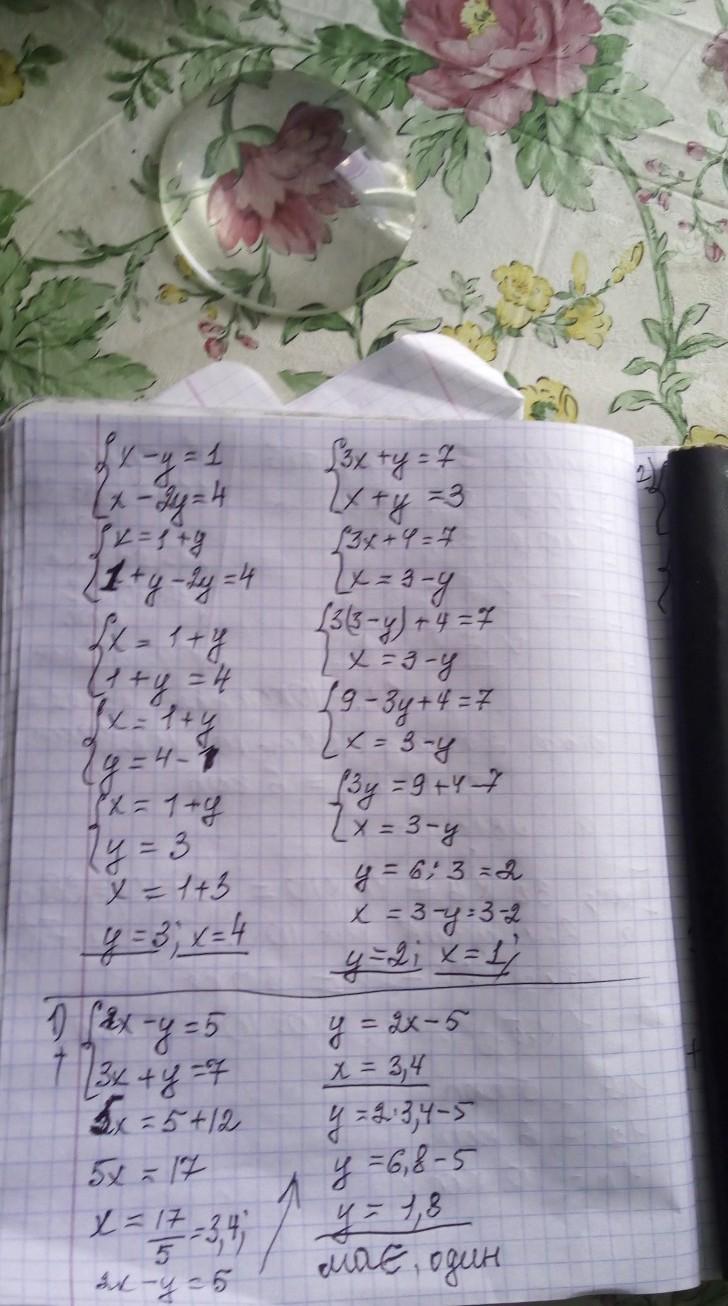 {x - y = 1
{x - 2y = 4
{x = 1 + y
{1 + y - 2y = 4
{x = 1 + y
{1 + y = 4
{x = 1 + y
{y = 4 - 1
{x = 1 + y
{y = 3
x = 1 + 3
y = 3; x = 4
{3x + y = 7
{x + y = 3
{3x + 4 = 7
{x = 3 - y
{3(3 - y) + 4 = 7
{x = 3 - y
{9 - 3y + 4 = 7
{x = 3 - y
{3y = 9 + 4 - 7
{x = 3 - y
y = 6 : 3 = 2
x = 3 - y = 3 - 2
y = 2; x = 1;
1) {2x - y = 5
+ {3x + y = 7
5x = 5 + 12
5x = 17
x = 17/5 = 3,4;
2x - y = 5
y = 2x - 5
x = 3,4
y = 2·3,4 - 5
y = 6,8 - 5
y = 1,8
має, один
2)
+